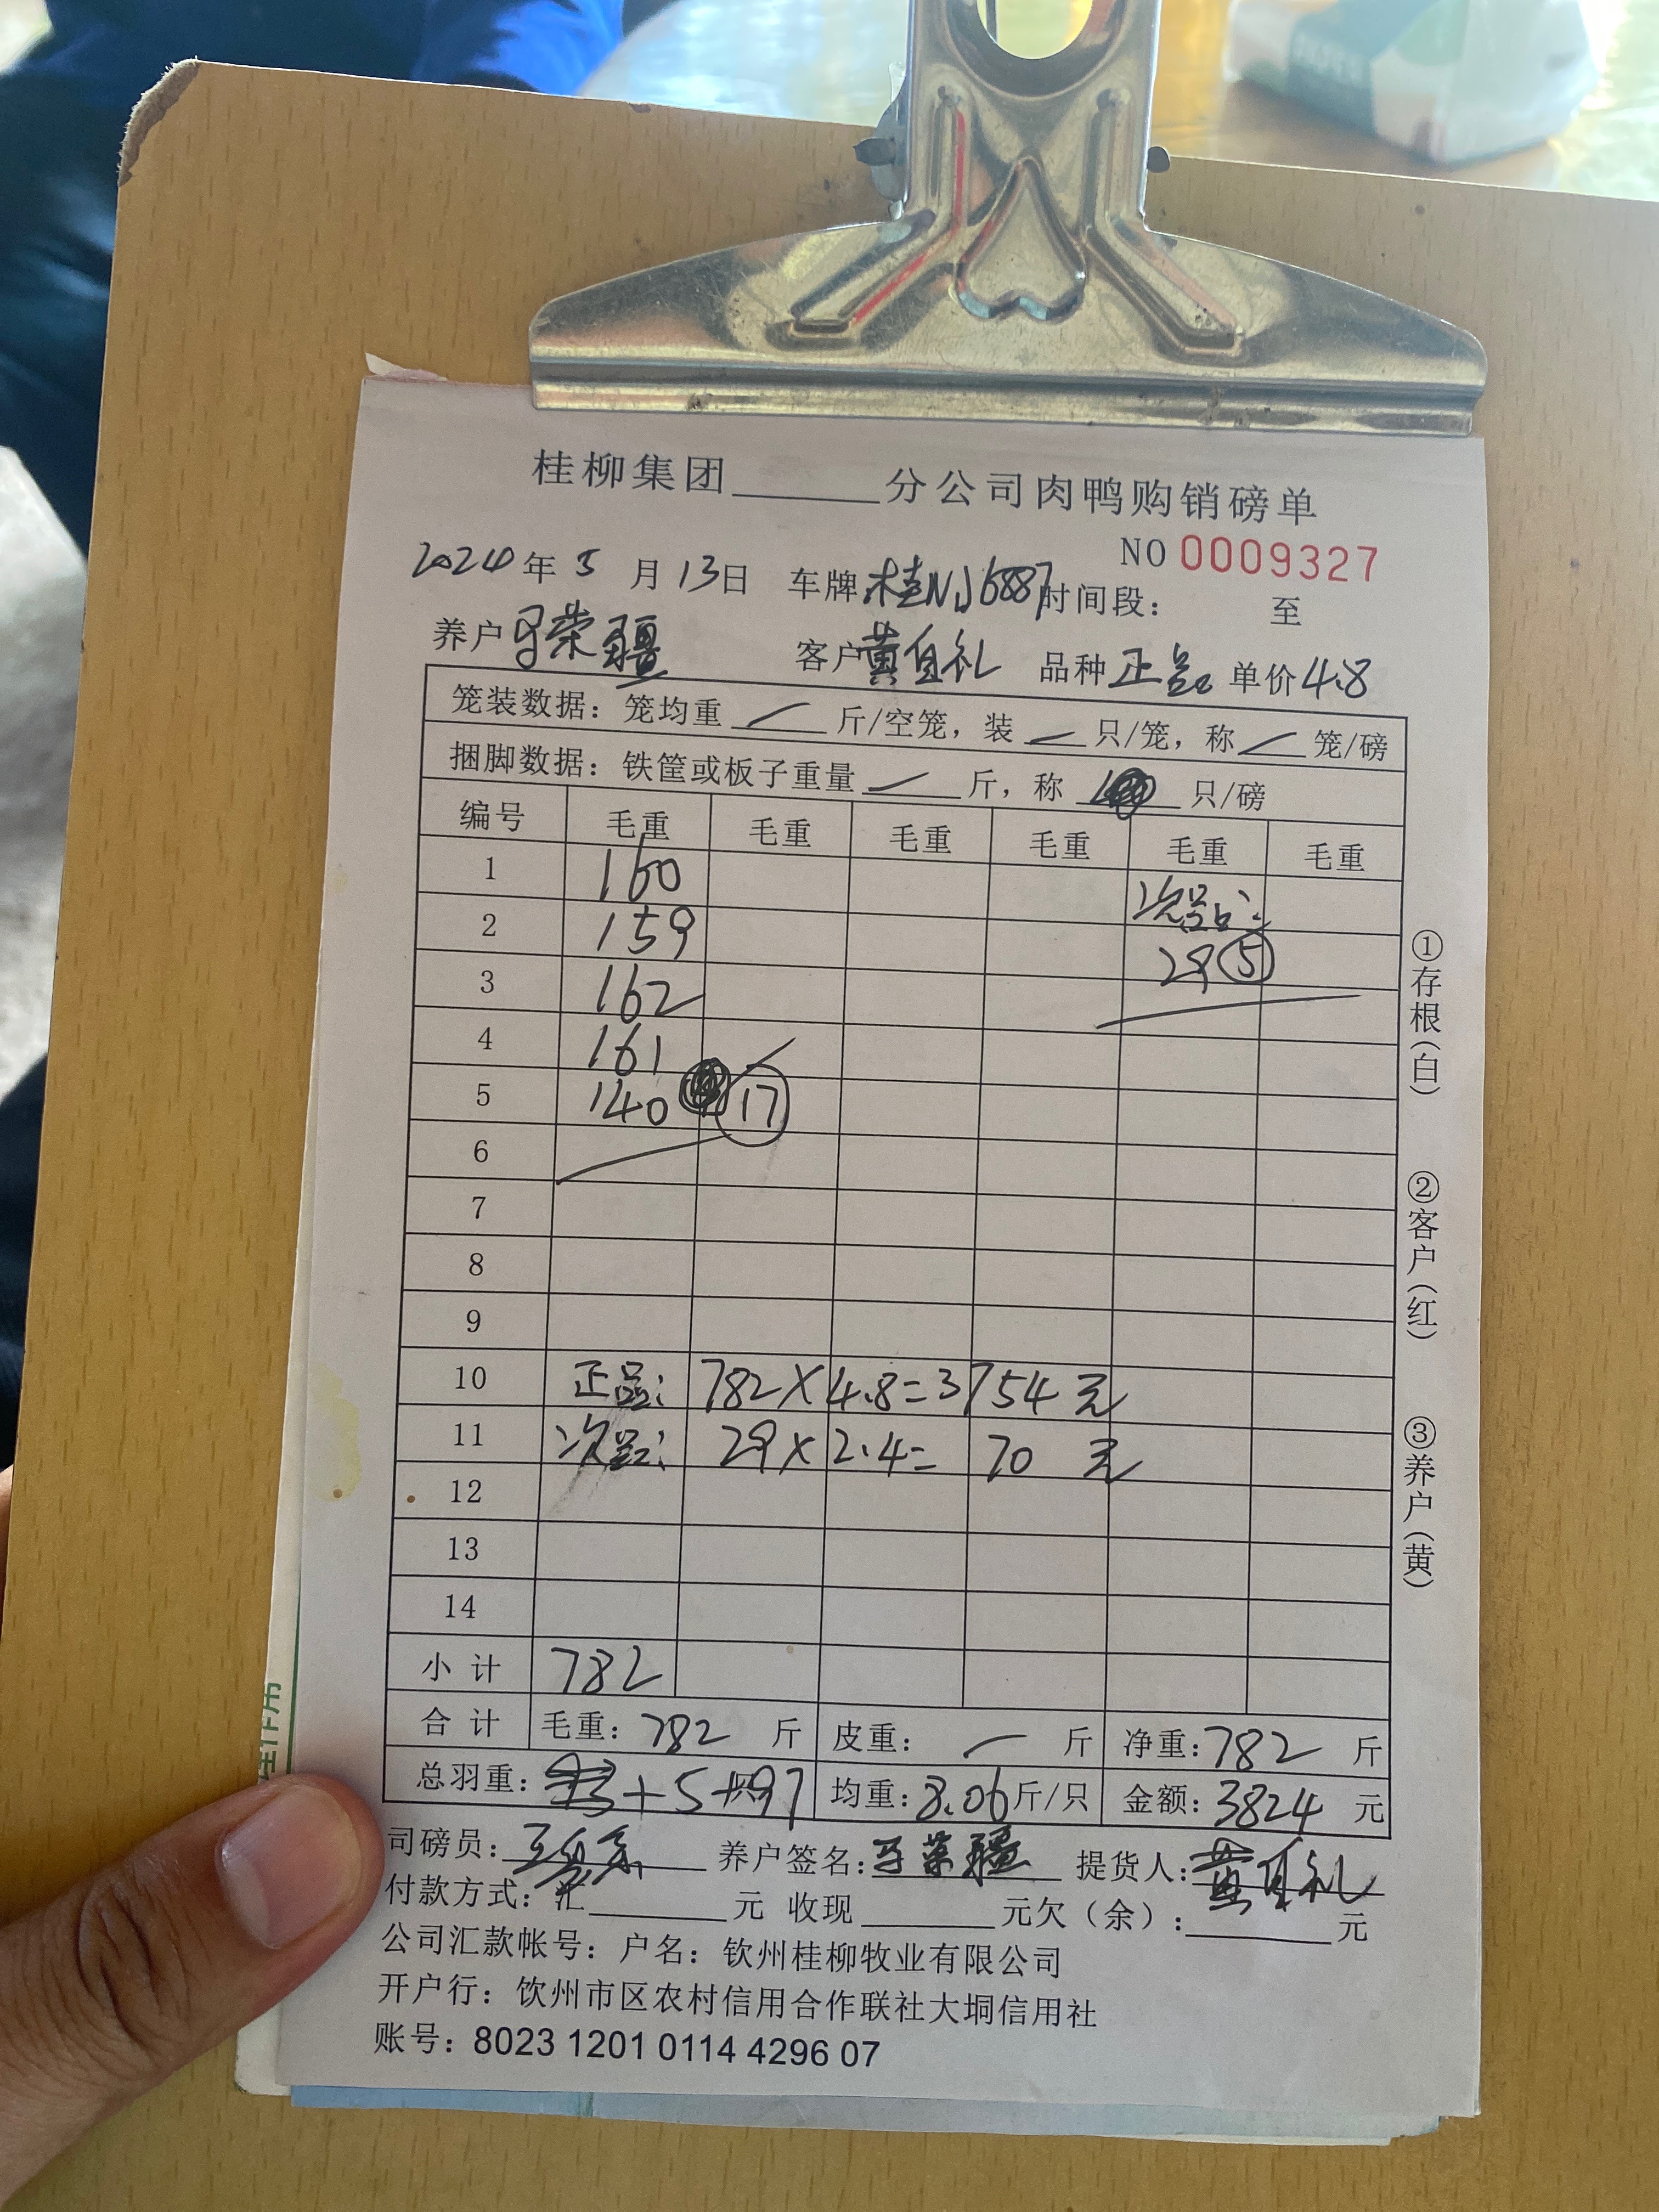 桂柳集团______分公司肉鸭购销磅单
NO 0009327
2024年5月13日 车牌桂NJ6887时间段： 至
养户 荣疆 客户黄自礼 品种正品 单价4.8
笼装数据：笼均重 / 斤/空笼，装 / 只/笼，称 / 笼/磅
捆脚数据：铁筐或板子重量 / 斤，称 只/磅
编号 毛重 毛重 毛重 毛重 毛重 毛重
1 160 次品：
2 159 29 ⑤
3 162
4 161
5 140 ⑰
6
7
8
9
10 正品： 782×4.8=3754 元
11 次品： 29×2.4= 70 元
12
13
14
小计 782
合计 毛重：782 斤 皮重： / 斤 净重：782 斤
总羽重： +5 97 均重：8.06斤/只 金额：3824 元
司磅员： 养户签名： 荣疆 提货人：黄自礼
付款方式：汇______元 收现______元欠（余）：______元
公司汇款帐号：户名：钦州桂柳牧业有限公司
开户行：饮州市区农村信用合作联社大垌信用社
账号：8023 1201 0114 4296 07
①存根（白）
②客户（红）
③养户（黄）